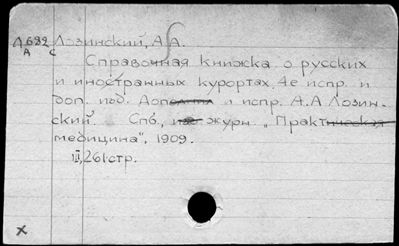 Л682 Лозинский, А.А.
А с
Справочная книжка о русских
и иностранных курортах. 4е испр. и
доп. изд. Доп и испр. А.А Лозин-
ский. Спб., журн. „Практ
медицина", 1909.
III, 261 стр.
x